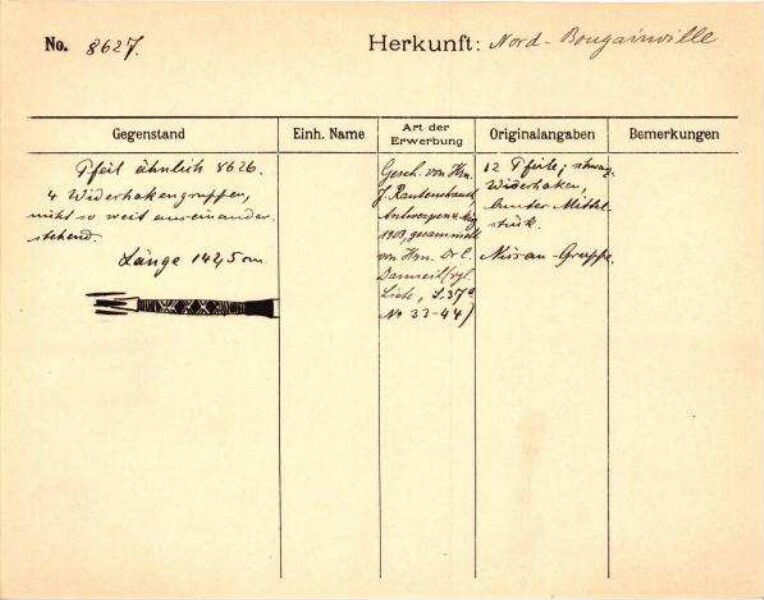 No. 8627.
Herkunft: Nord-Bougainville
Gegenstand
Einh. Name
Art der
Erwerbung
Originalangaben
Bemerkungen
Pfeil ähnlich 8626.
4 Widerhakengruppen,
nicht so weit auseinander
stehend.
Länge 142,5 cm
Gesch. von Hrn.
J. Rautenstrauch
Antwerpen
1903, gesammelt
von Hrn. Dr C.
Liste, S. 37
No 33-44)
12 Pfeile;
Widerhaken,
bunter Mittel-
stück.
Nissan-Gruppe.